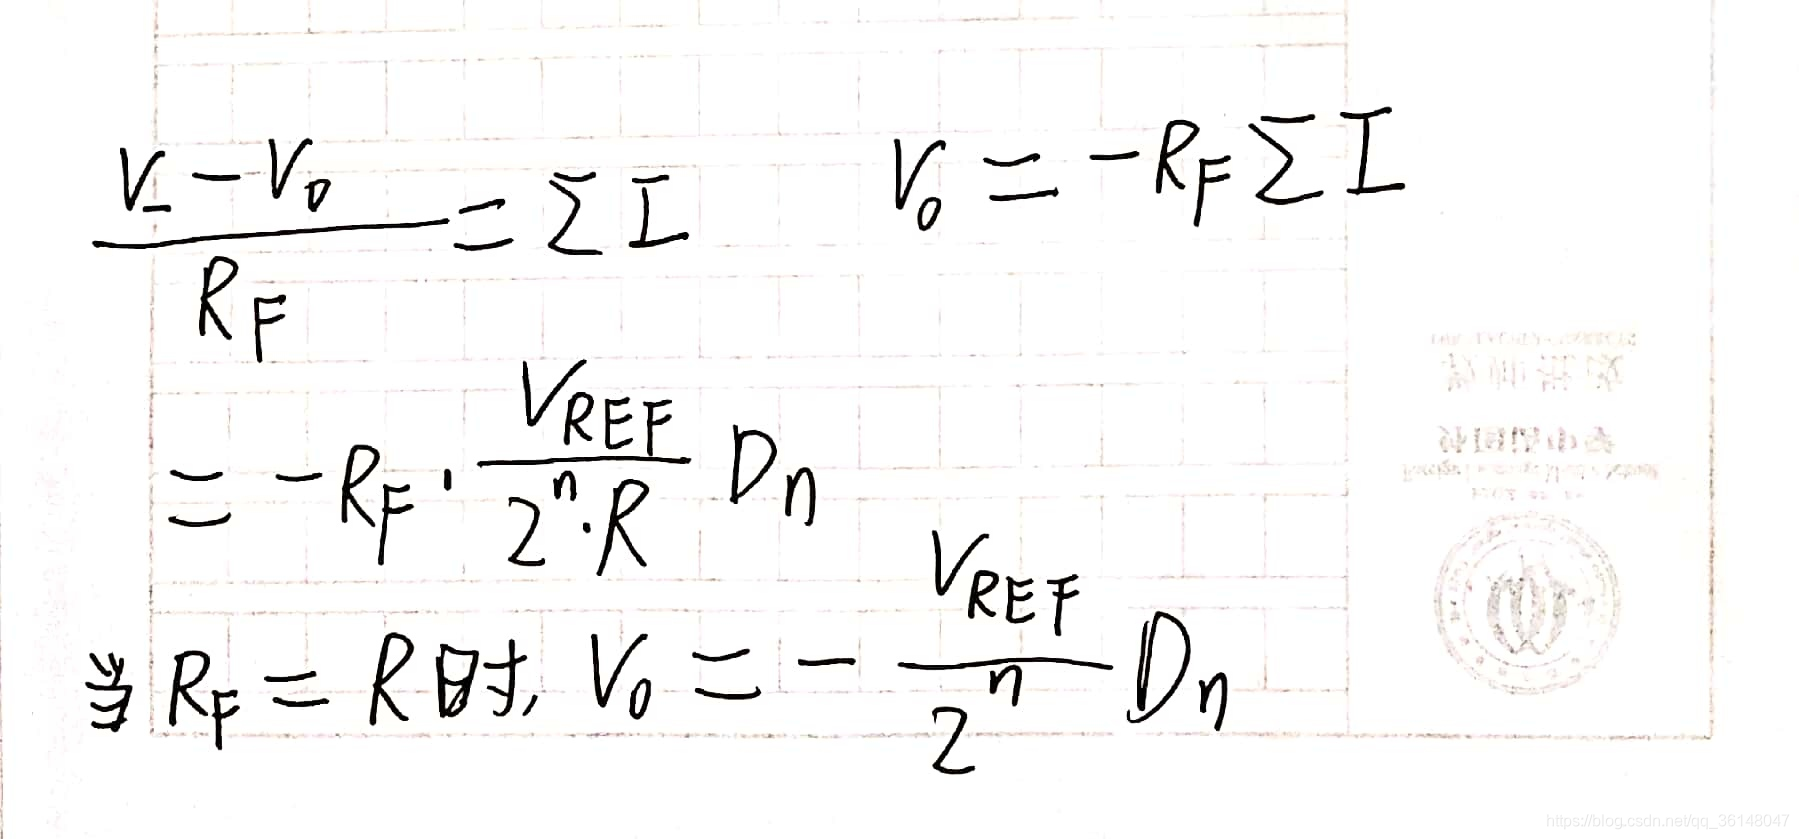 (V₋ − V₀) / R_F = Σ I    V₀ = −R_F Σ I
= −R_F · V_REF / (2ⁿ · R) Dₙ
当 R_F = R 时, V₀ = − V_REF / 2ⁿ Dₙ
https://blog.csdn.net/qq_36148047